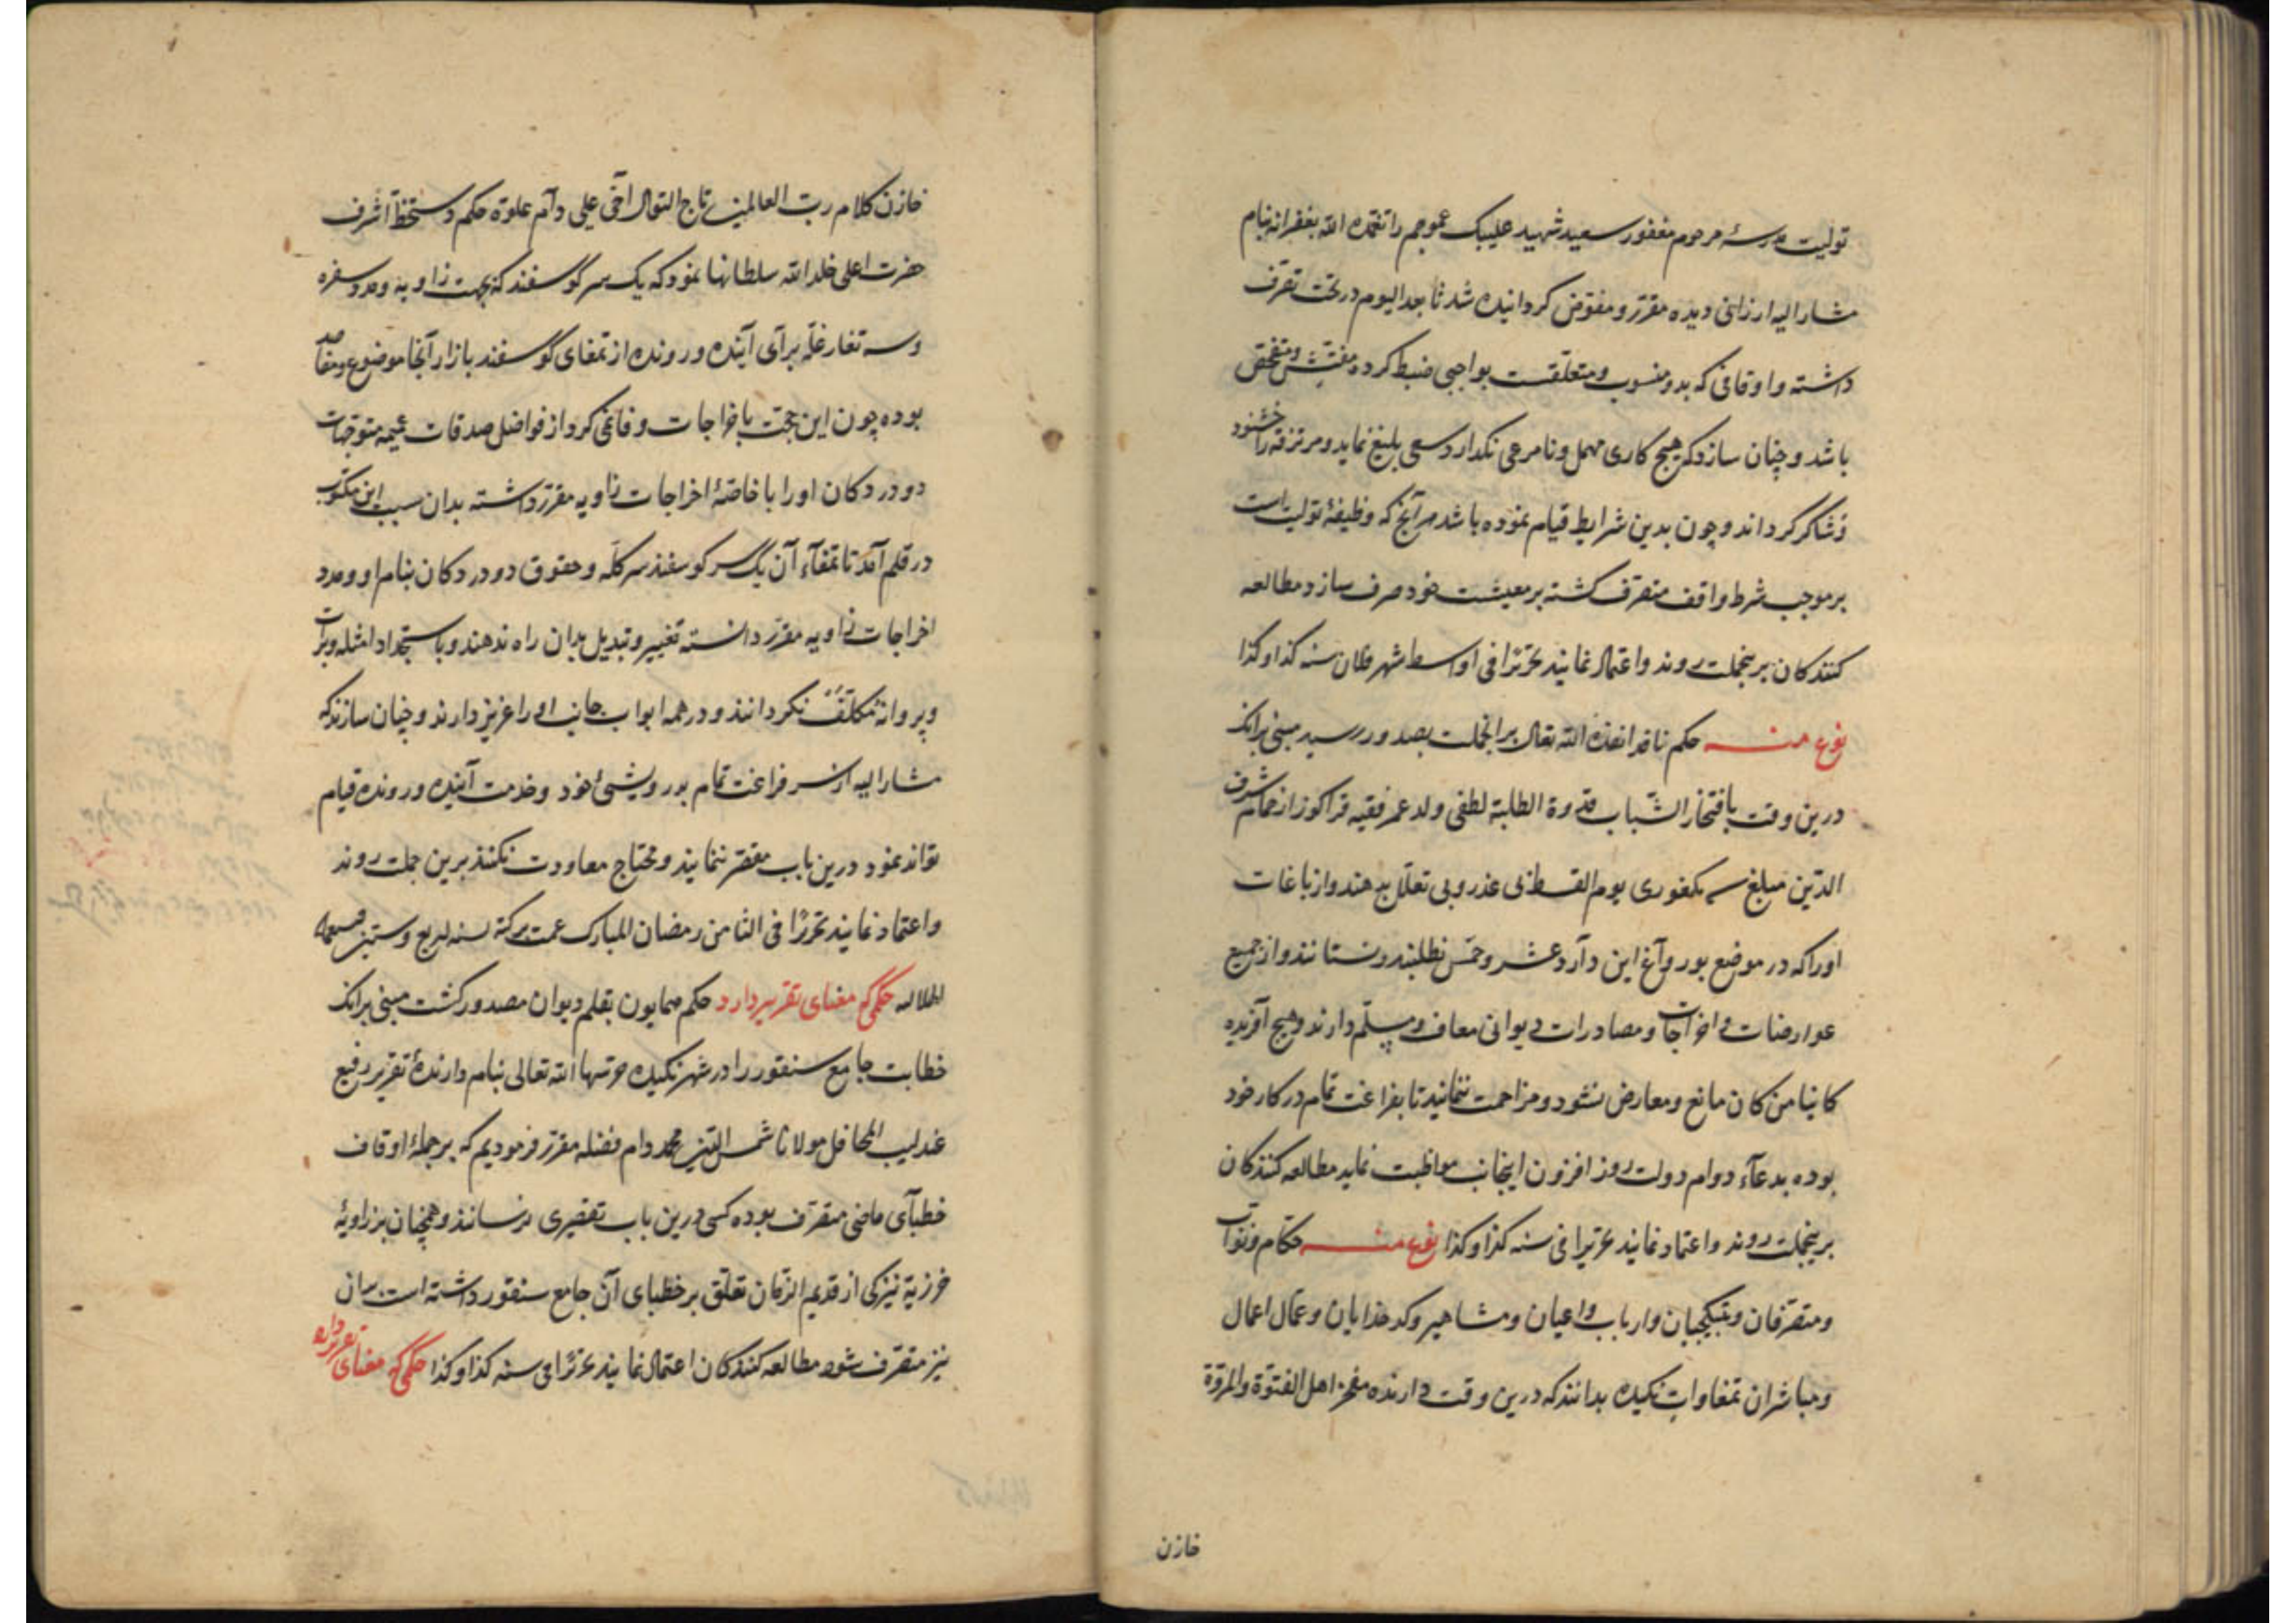 تولیت مدرسهٔ مرحوم مغفور سعید شهید علیبک عموجم را تغمده الله بغفرانه بنام
مشار الیه ارزانی دیده مقرر و مفوض کردانیده شد تا بعد الیوم در تحت تصرف
داشته و اوقافی که بدو منسوب و متعلقست بواجبی ضبط کرده مفتش و متفحص
باشد و چنان سازد که هیچ کاری مهمل و نامرعی نکدارد و سعی بلیغ نماید و مرتزقه را خشنود
و شاکر کرداند و چون بدین شرایط قیام نموده باشد هر آنچ که وظیفهٔ تولیت است
بر موجب شرط واقف متصرف کشته بر معیشت خود صرف سازد مطالعه
کنندکان برینجملت روند و اعتماد نمایند تحریرا فی اواسط شهر فلان سنه کذا و کذا
نوع منه حکم نافذ انفذه الله تعالی برانجملت بصدور رسید مبنی برانک
درین وقت بافتخار الشباب قدوة الطلبة لطفی ولد عمر فقیه قراکوز از حمام شرف
الدین مبلغ سه یکغوری یوم القسط بی عذر و بی تعلل بدهند و از باغات
او را که در موضع بور و آغ این دآرد عشر و خمس نطلبند و نستانند و از جمیع
عوارضات و اخراجات و مصادرات دیوانی معاف و مسلم دارند و هیچ آفریده
کاینا من کان مانع و معارض نشود و مزاحمت ننمانید تا بفراغت تمام در کار خود
بوده بدعآء دوام دولت روز افزون اینجانب مواظبت نماید مطالعه کنندکان
برینجملت روند و اعتماد نمایند تحریرا فی سنه کذا و کذا نوع منه حکام و نواب
و متصرفان و بتیکچیان و ارباب و اعیان و مشاهیر و کدخدایان و عمال اعمال
و مباشران تمغاوات نکیده بدانند که درین وقت دارنده مفخر اهل الفتوة والمروة
خازن
خازن کلام رب العالمین تاج التقال اخی علی دام علوه حکم و ستخط اشرف
حضرت اعلی خلد الله سلطانها نمود که یک سر گوسفند که بجهت زاویه و مدد سفره
و سه تغار غله برای آینده و رونده از تمغای گوسفند بازار آنجا موضوع و مقاصه
بوده چون این جهت باخراجات وفا نمی کرد از فواضل صدقات عمیمه متوجهات
دو در دکان او را با خاصهٔ اخراجات زاویه مقرر داشته بدان سبب این مکتوب
در قلم آمد تا تمغآء آن یک سر کوسفند سر کله و حقوق دو در دکان بنام او و مدد
اخراجات زاویه مقرر دانسته تغییر و تبدیل بدان راه ندهند و باستجداد امثله و برات
و پروانه مکلف نکردانند و در همه ابواب جانب او را عزیز دارند و چنان سازند که
مشار الیه از سر فراغت تمام بدرویشئ خود و خدمت آینده و رونده قیام
تواند نمود درین باب مقصر ننمایند و محتاج معاودت نکنند برین جملت روند
و اعتماد نمایند تحریرا فی الثامن رمضان المبارک عمت برکته لسنه اربع و ستین
الهلالیه حکمی که معنای تقریر دارد حکم همایون بقلم دیوان مصدور کشت مبنی برانک
خطابت جامع سنقور را در شهر نکیده حرسها الله تعالی بنام دارندهٔ تقریر رفیع
عندلیب المحافل مولانا شمس الدین محمد دام فضله مقرر فرمودیم که بر جملهٔ اوقاف
خطبآی ماضی متصرف بوده کسی درین باب تقصیری نرسانند و همچنان بر زاویهٔ
خرزیه نیز کی از قدیم الزمان تعلق بر خطبای آن جامع سنقور داشته است بران
نیز متصرف شود مطالعه کنندکان اعتماد نمایند تحریرا فی سنه کذا و کذا حکمی که معنای تقریر دارد